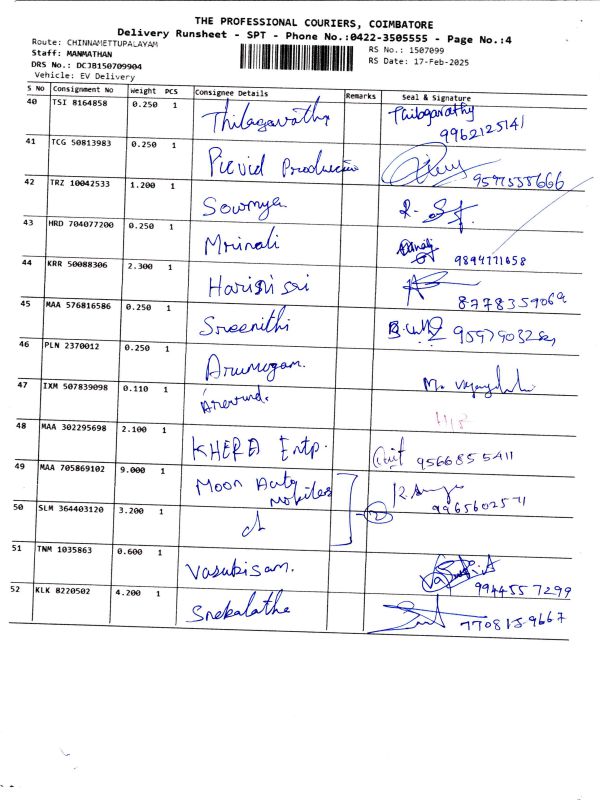 THE PROFESSIONAL COURIERS, COIMBATORE
Delivery Runsheet - SPT - Phone No.:0422-3505555 - Page No.:4
Route: CHINNAMETTUPALAYAM
RS No.: 1507099
Staff: MANMATHAN
RS Date: 17-Feb-2025
DRS No.: DCJB150709904
Vehicle: EV Delivery
S No Consignment No Weight PCS Consignee Details Remarks Seal & Signature
40 TSI 8164858 0.250 1 Thilagavathy Thilagavathy
9962125141
41 TCG 50813983 0.250 1 Picvid Production
42 TRZ 10042533 1.200 1 Sowmya
43 HRD 704077200 0.250 1 Mrinali
9894771658
44 KRR 50088306 2.300 1 Harish Sri
8778359069
45 MAA 576816586 0.250 1 Sreenithi
46 PLN 2370012 0.250 1 Arumugam.
47 IXM 507839098 0.110 1 Aravind.
48 MAA 302295698 2.100 1 KHERA Entp.
9566855411
49 MAA 705869102 9.000 1 Moon Auto
Mobiles
2
9965602571
50 SLM 364403120 3.200 1
51 TNM 1035863 0.600 1 Vasukisam.
9944557299
52 KLK 8220502 4.200 1 Snekalatha
770815-9667